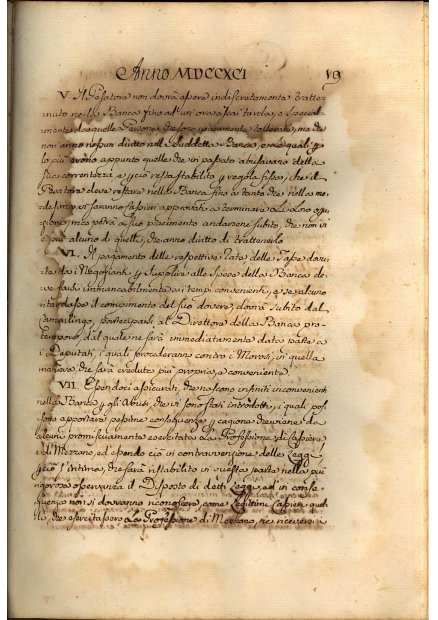 Anno MDCCXCI 19
V. Il Pesatore non dovrà essere indiscretamente tratte-
nuto nella Banca fino ad un'ora assai tarda, e special-
mente da quelle Persone, che sono unicamente tollerate, ma che
non anno nessun diritto nella suddetta Banca, e le quali
lo più erono appunto quelle che in passato abusavano della
sua correntezza, e perciò resta stabilito per regola fissa, che il
Pesatore deve restare nella Banca fino a tanto che nella me-
desima vi saranno Cassieri approvati a terminare le Loro ope-
razioni, ma potrà a suo piacimento andarsene subito, che non vi
è più alcuno di quelli, che anno diritto di trattenerlo
VI. Il pagamento delle respettive rate delle Tasse dovu-
te dai Negozianti, per supplire alle spese della Banca de-
ve farsi immancabilmente a i tempi convenienti, e se alcuno
ritardasse il compimento del suo dovere, dovrà subito dal
Camarlingo, parteciparsi al Direttore della Banca pro-
tempore, dal quale ne sarà immediatamente data parte a
i Deputati, i quali procederanno contro i Morosi, in quella
maniera, che sarà creduta più propria, e conveniente.
VII. Essendoci assicurati, che nascono infiniti inconvenienti
nella Banca per gli Abusi, che vi sono stati introdotti, i quali pos-
sono apportare pessime conseguenze per cagione che viene da
alcuni promiscuamente esercitata La Professione di Cassiere
e di Mezzano, ed essendo ciò in contravvenzione delle Leggi
perciò s'intima, che sarà ristabilito in questa parte nella più
rigorosa osservanza il Disposto di dette Leggi, ed in conse-
quenza non si dovranno riconoscere come Legittimi Cassieri quel-
li, che esercitassero La Professione di Mezzano, ne ricevere i